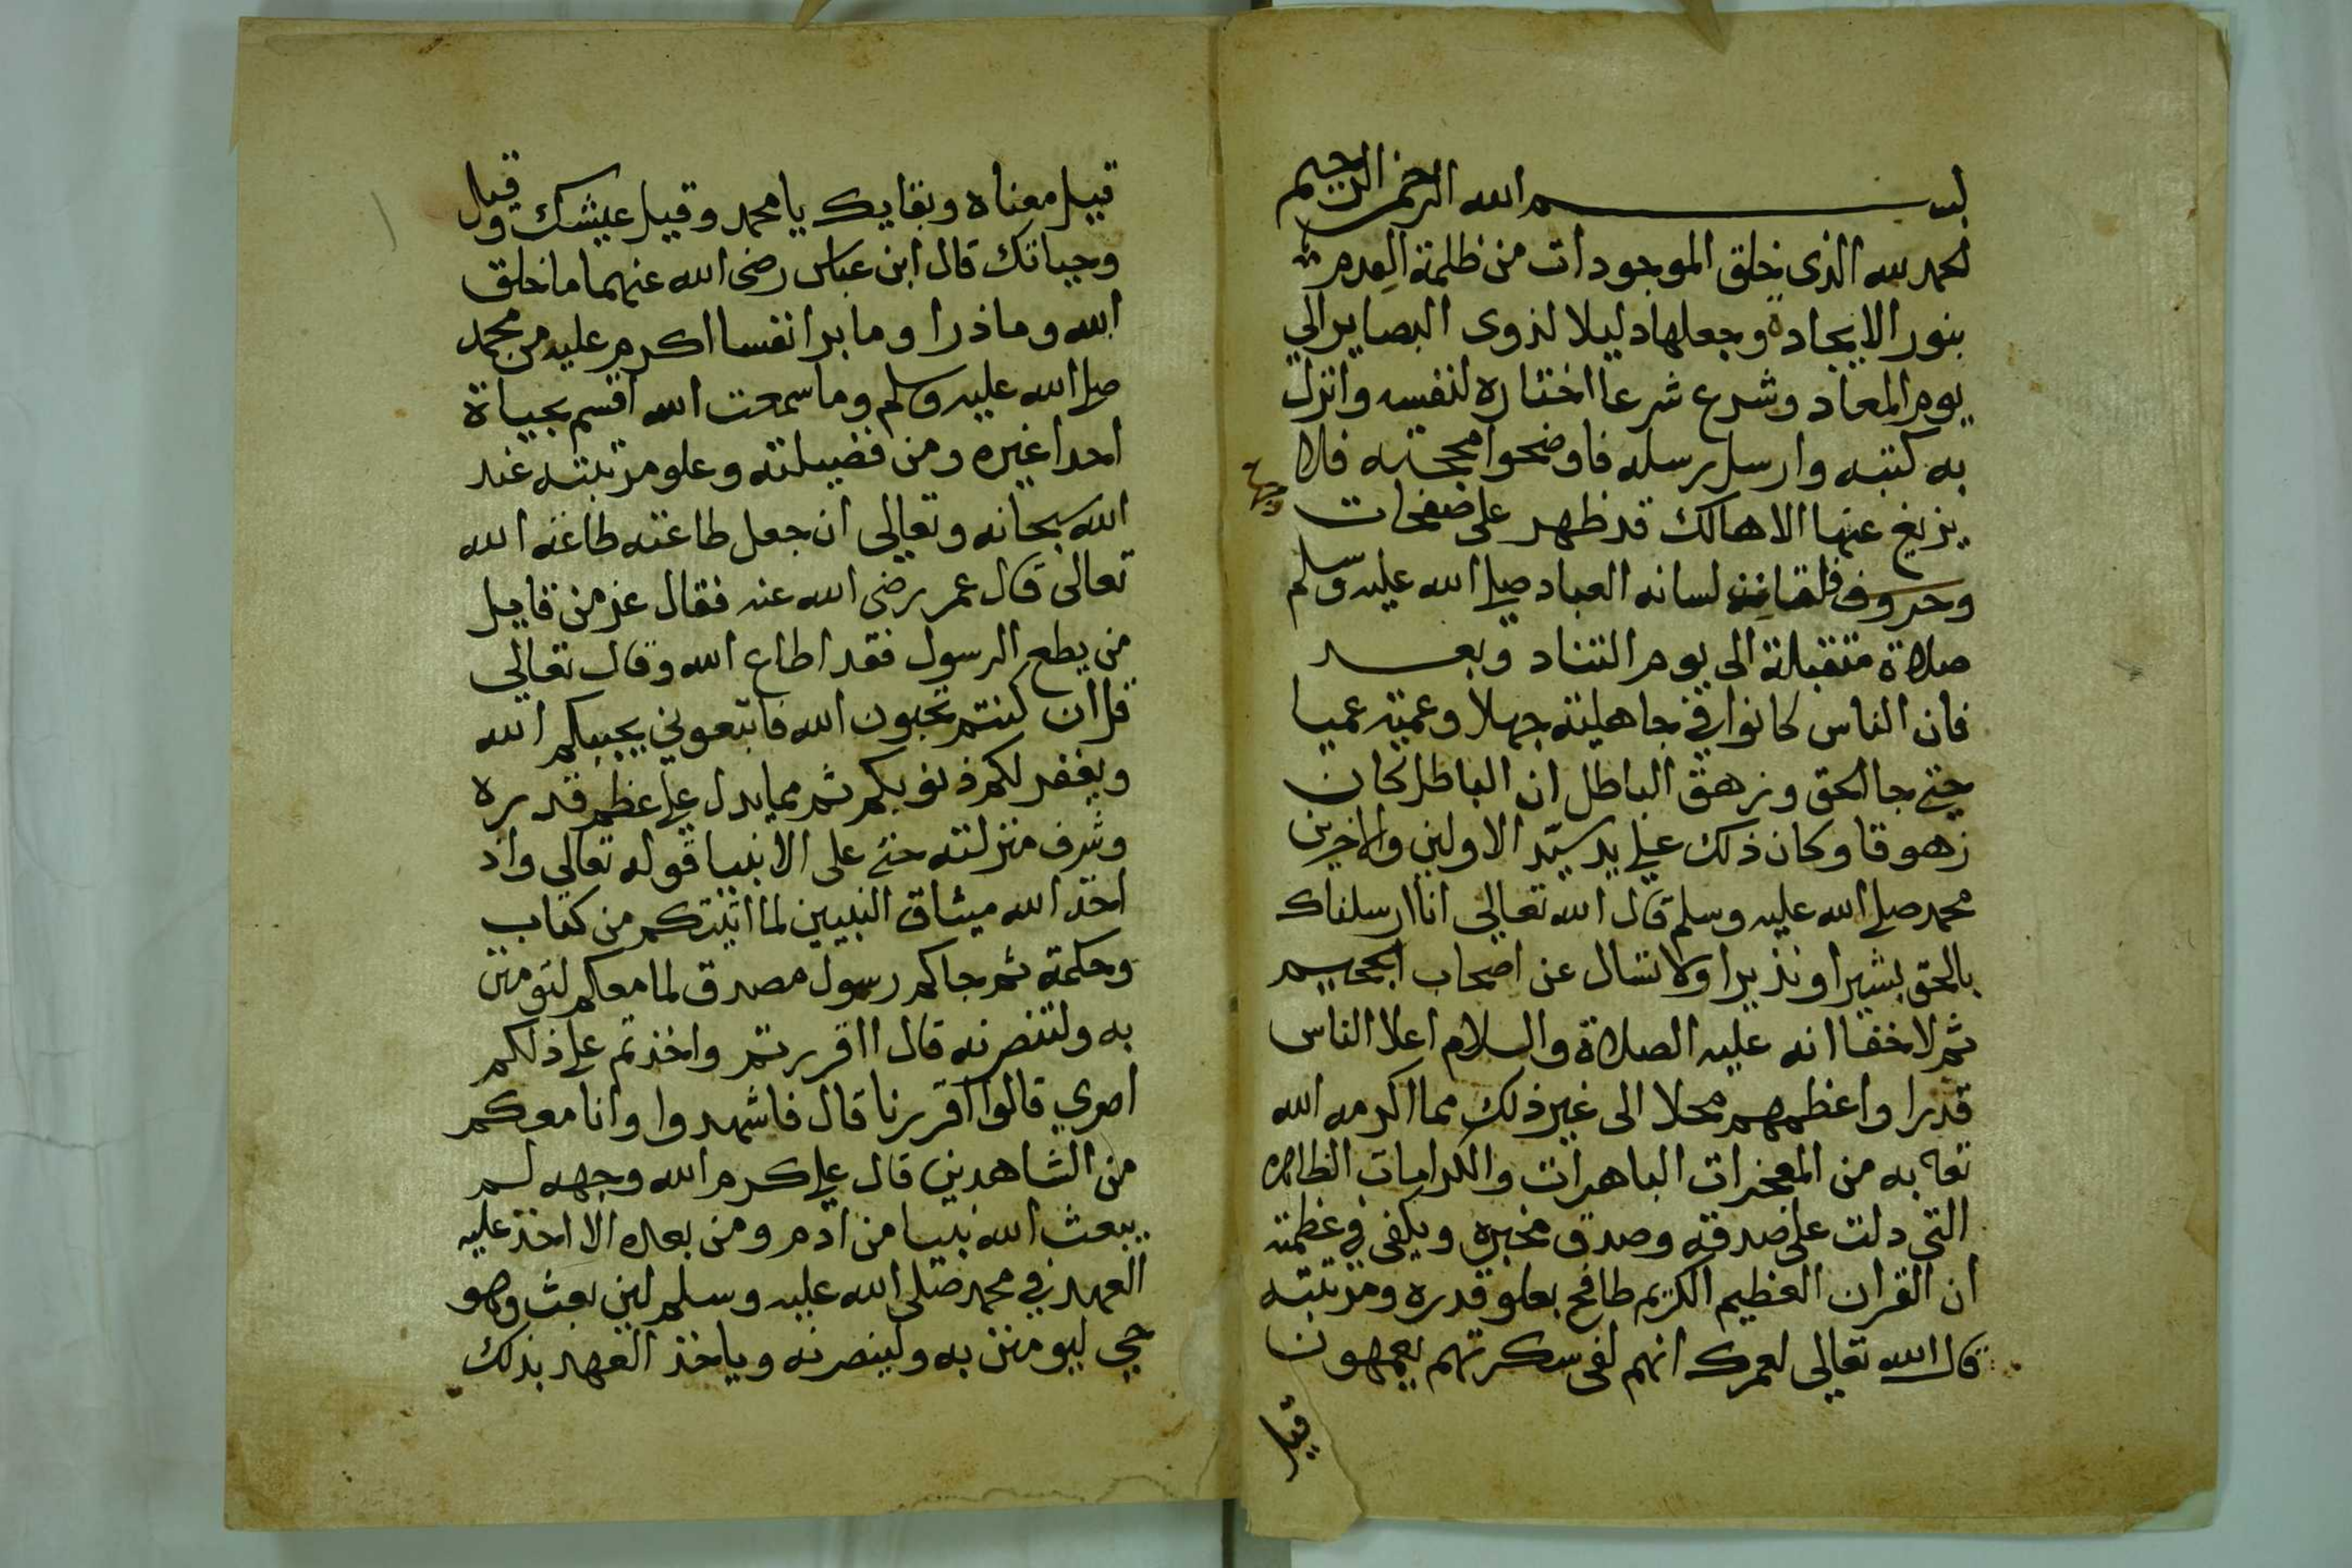 بسم الله الرحمن الرحيم
الحمد لله الذى خلق الموجودات من ظلمة العدم
بنور الايجاد وجعلها دليلا لذوى البصاير الي
يوم المعاد وشرع شرعا اختاره لنفسه وانزل
به كتبه وارسل رسله فاوضحوا محجته فلا
يزيغ عنها الا هالك قد ظهر على صفحات
وجهه
وحروف لسانه العباد صلى الله عليه وسلم
صلاة متقبلة الى يوم التناد وبعد
فان الناس كانوا في جاهلية جهلا وعمية عميا
حتى جا الحق وزهق الباطل ان الباطل كان
زهوقا وكان ذلك على يد سيّد الاولين والاخرين
محمد صلى الله عليه وسلم قال الله تعالى انا ارسلناك
بالحق بشيرا ونذيرا ولا تسال عن اصحاب الجحيم
ثم لا خفا انه عليه الصلاة والسلام اعلا الناس
قدرا واعظمهم محلا الى غير ذلك مما اكرمه الله
تعه به من المعجزات الباهرات والكرامات الظاهره
التى دلت على صدقه وصدق مخبره ويكفى في عظمته
ان القران العظيم الكريم طافح بعلو قدره ومرتبته
قال الله تعالى لعمرك انهم لفى سكرتهم يعمهون
قيل
قيل معناه وبقايك يا محمد وقيل عيشك وقيل
وحياتك قال ابن عباس رضى الله عنهما ما خلق
الله وما ذرا وما برا نفسا اكرم عليه من محمد
صلى الله عليه وسلم وما سمعت الله اقسم بحياة
احدا غيره ومن فضيلته وعلو مرتبته عند
الله سبحانه وتعالى ان جعل طاعته طاعة الله
تعالى قال عمر رضى الله عنه فقال عز من قايل
من يطع الرسول فقد اطاع الله وقال تعالى
قل ان كنتم تحبون الله فاتبعوني يحببكم الله
ويغفر لكم ذنوبكم ثم مما يدل على عظم قدره
وشرف منزلته حتى على الانبيا قوله تعالى واذ
اخذ الله ميثاق النبيين لما اتيتكم من كتاب
وحكمة ثم جاكم رسول مصدق لما معكم لتومنن
به ولتنصرنه قال ااقررتم واخذتم على ذلكم
اصري قالوا اقررنا قال فاشهدوا وانا معكم
من الشاهدين قال على كرم الله وجهه لم
يبعث الله نبيا من ادم ومن بعده الا اخذ عليه
العهد في محمد صلى الله عليه وسلم لين بعث وهو
حي ليومنن به ولينصرنه وياخذ العهد بذلك